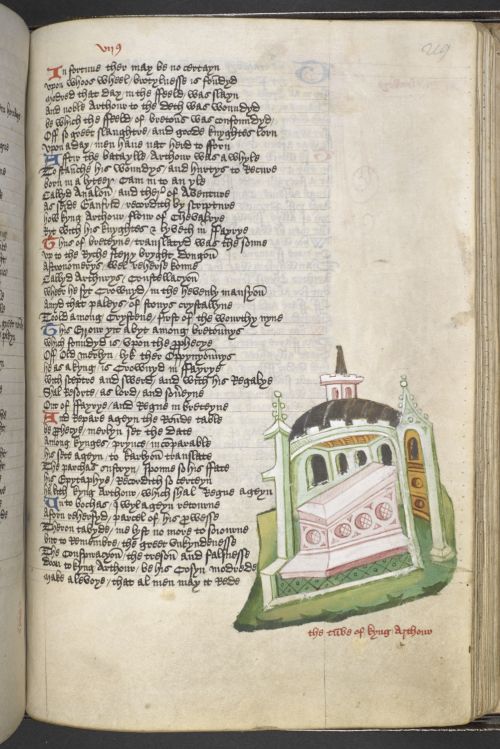 viii 9
In fortune ther may be no certayn
vpon whoos wheel / brotylnesse is foūdyd
modred that day / in the ffeeld was slayn
And noble Arthour to the deth was wounndyd
be which the ffeeld of bretouns was confoundyd
Off so greet slaughtre / and goode knyghtes lorn
vpon a day / men have nat herd to fforn
Aftir the bataylle Arthour was a whyle
To stanche his woundys / and hurtys to Recure
born in a lyteer cam in to an yle
Callyd Analoun / and ther of Aventure
As seide Gaufrid / recordith by scripture
how kyng Arthour flour of Chevalrye
Ryt with his knyghtes & lyveth in ffayrye
Thus of breteyne / translatyd was the sonne
vp to the Ryche sterry bryght dongoū
Astronomeers / wel reherse konne
Callyd Arthurys / Constellacyoū
wher he syt Crownyd / in the hevenly mansyoū
Amyd the paleys of stonys crystallyne
Toold among Crystene / first of the wourthy nyne
This Errour yit abyt among bretouns
which foundid is vpon the pphecye
Off Old merlyn lyk ther Oppynyouns
he as a kyng is Crownyd in ffayrye
with sceptre and swerd / and with his Regalye
Shal Resorte / as lord / and souereyne
Out of ffayrye / and Regne in breteyne
And Repare ageyn the Rounde table
be pphecye / merlyn set the date
among kynges / prynce in comparable
his sete ageyn / to karlioun translate
The parchas sustryn / sponne so his ffate
his Epytaphye / Recordeth so certeyn
heer lith kyng Arthour / which shal Regne ageyn
Unto bochas / I wyl ageyn retourne
Aforn rehersyd / parcel of his prowesse
Theron tabyde / me lyst no more to soiourne
but to Remembre / the greet vnkyndenesse
The Conspiracyoū / the tresoū and falsnesse
Doon to kyng Arthour / be his Cosyn modrede
make alevoye / that al men may it Rede
the tūbe of kyng Arthour